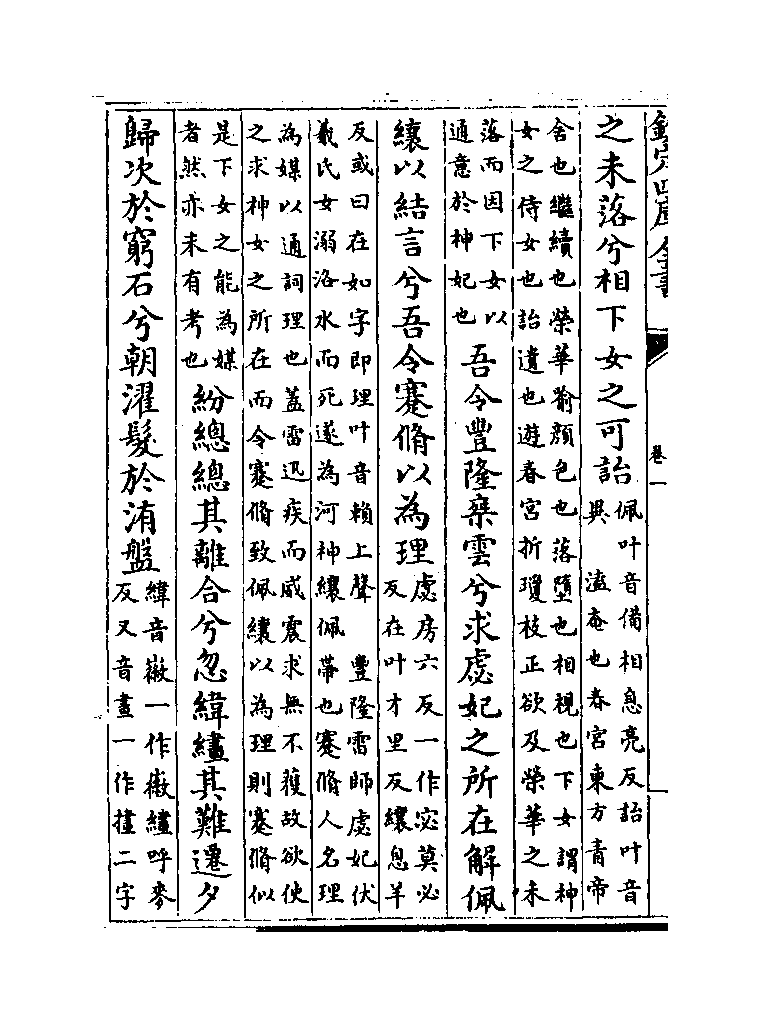 欽定四庫全書
卷一
之未落兮相下女之可詒佩叶音備相息亮反詒叶音
異 溘奄也春宮東方青帝
舍也繼續也榮華喻顔色也落墮也相視也下女謂神
女之侍女也詒遺也遊春宮折瓊枝正欲及榮華之未
落而因下女以
通意於神妃也吾令豐隆椉雲兮求虙妃之所在解佩
纕以結言兮吾令蹇脩以為理虙房六反一作宓莫必
反在叶才里反纕息羊
反或曰在如字即理叶音賴上聲 豐隆雷師虙妃伏
羲氏女溺洛水而死遂為河神纕佩帶也蹇脩人名理
為媒以通詞理也蓋雷迅疾而威震求無不獲故欲使
之求神女之所在而令蹇脩致佩纕以為理則蹇脩似
是下女之能為媒
者然亦未有考也紛總總其離合兮忽緯繣其難遷夕
歸次於窮石兮朝濯髮於洧盤緯音徽一作徽繣呼麥
反又音畫一作㨤二字